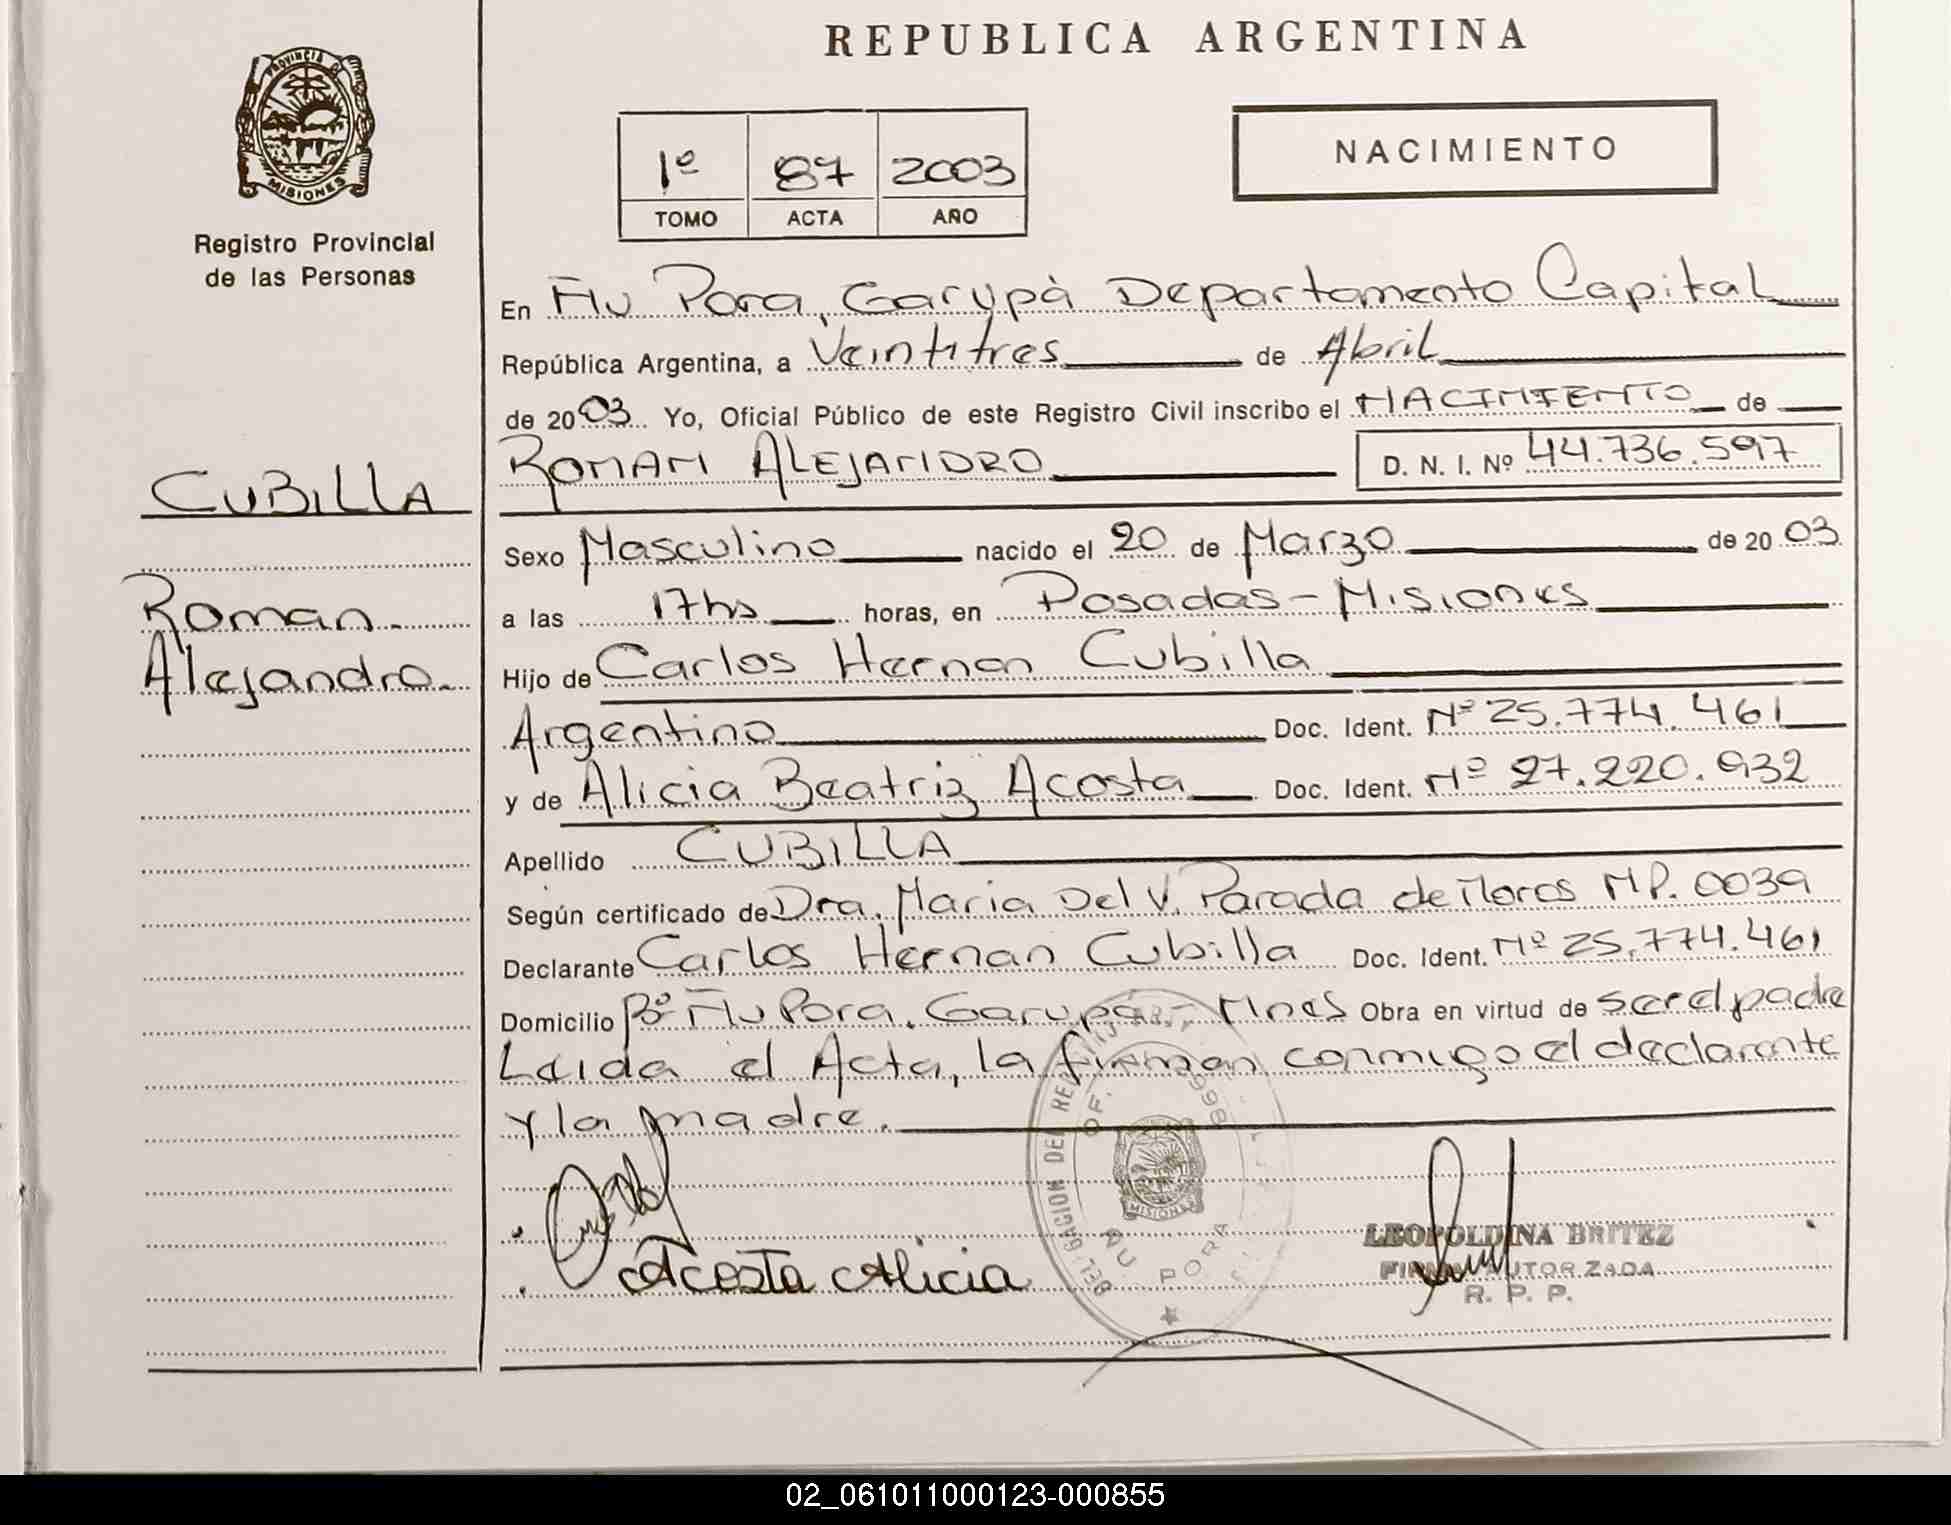 REPUBLICA ARGENTINA
PROVINCIA DE
MISIONES
Registro Provincial
de las Personas
1º 87 2003
TOMO ACTA AÑO
NACIMIENTO
En Ñu Pora, Garupà Departamento Capital
República Argentina, a Veintitres de Abril
de 2003. Yo, Oficial Público de este Registro Civil inscribo el NACIMIENTO de
ROMAN ALEJANDRO D. N. I. Nº 44.736.597
CUBILLA
Roman
Alejandro
Sexo Masculino nacido el 20 de Marzo de 2003
a las 17hs horas, en Posadas - Misiones
Hijo de Carlos Hernan Cubilla
Argentino Doc. Ident. Nº 25.774.461
y de Alicia Beatriz Acosta Doc. Ident. Nº 27.220.932
Apellido CUBILLA
Según certificado de Dra. Maria Del V. Parada de Moros MP. 0039
Declarante Carlos Hernan Cubilla Doc. Ident. Nº 25.774.461
Domicilio Bº Ñu Pora. Garupá - Mnes Obra en virtud de ser el padre
Leida el Acta, la firman conmigo el declarante
y la madre.
Acosta Alicia
DELEGACION DEL
OF. 998
ÑU PORA
MISIONES
LEOPOLDINA BRITEZ
FIRMA AUTORIZADA
R. P. P.
02_061011000123-000855